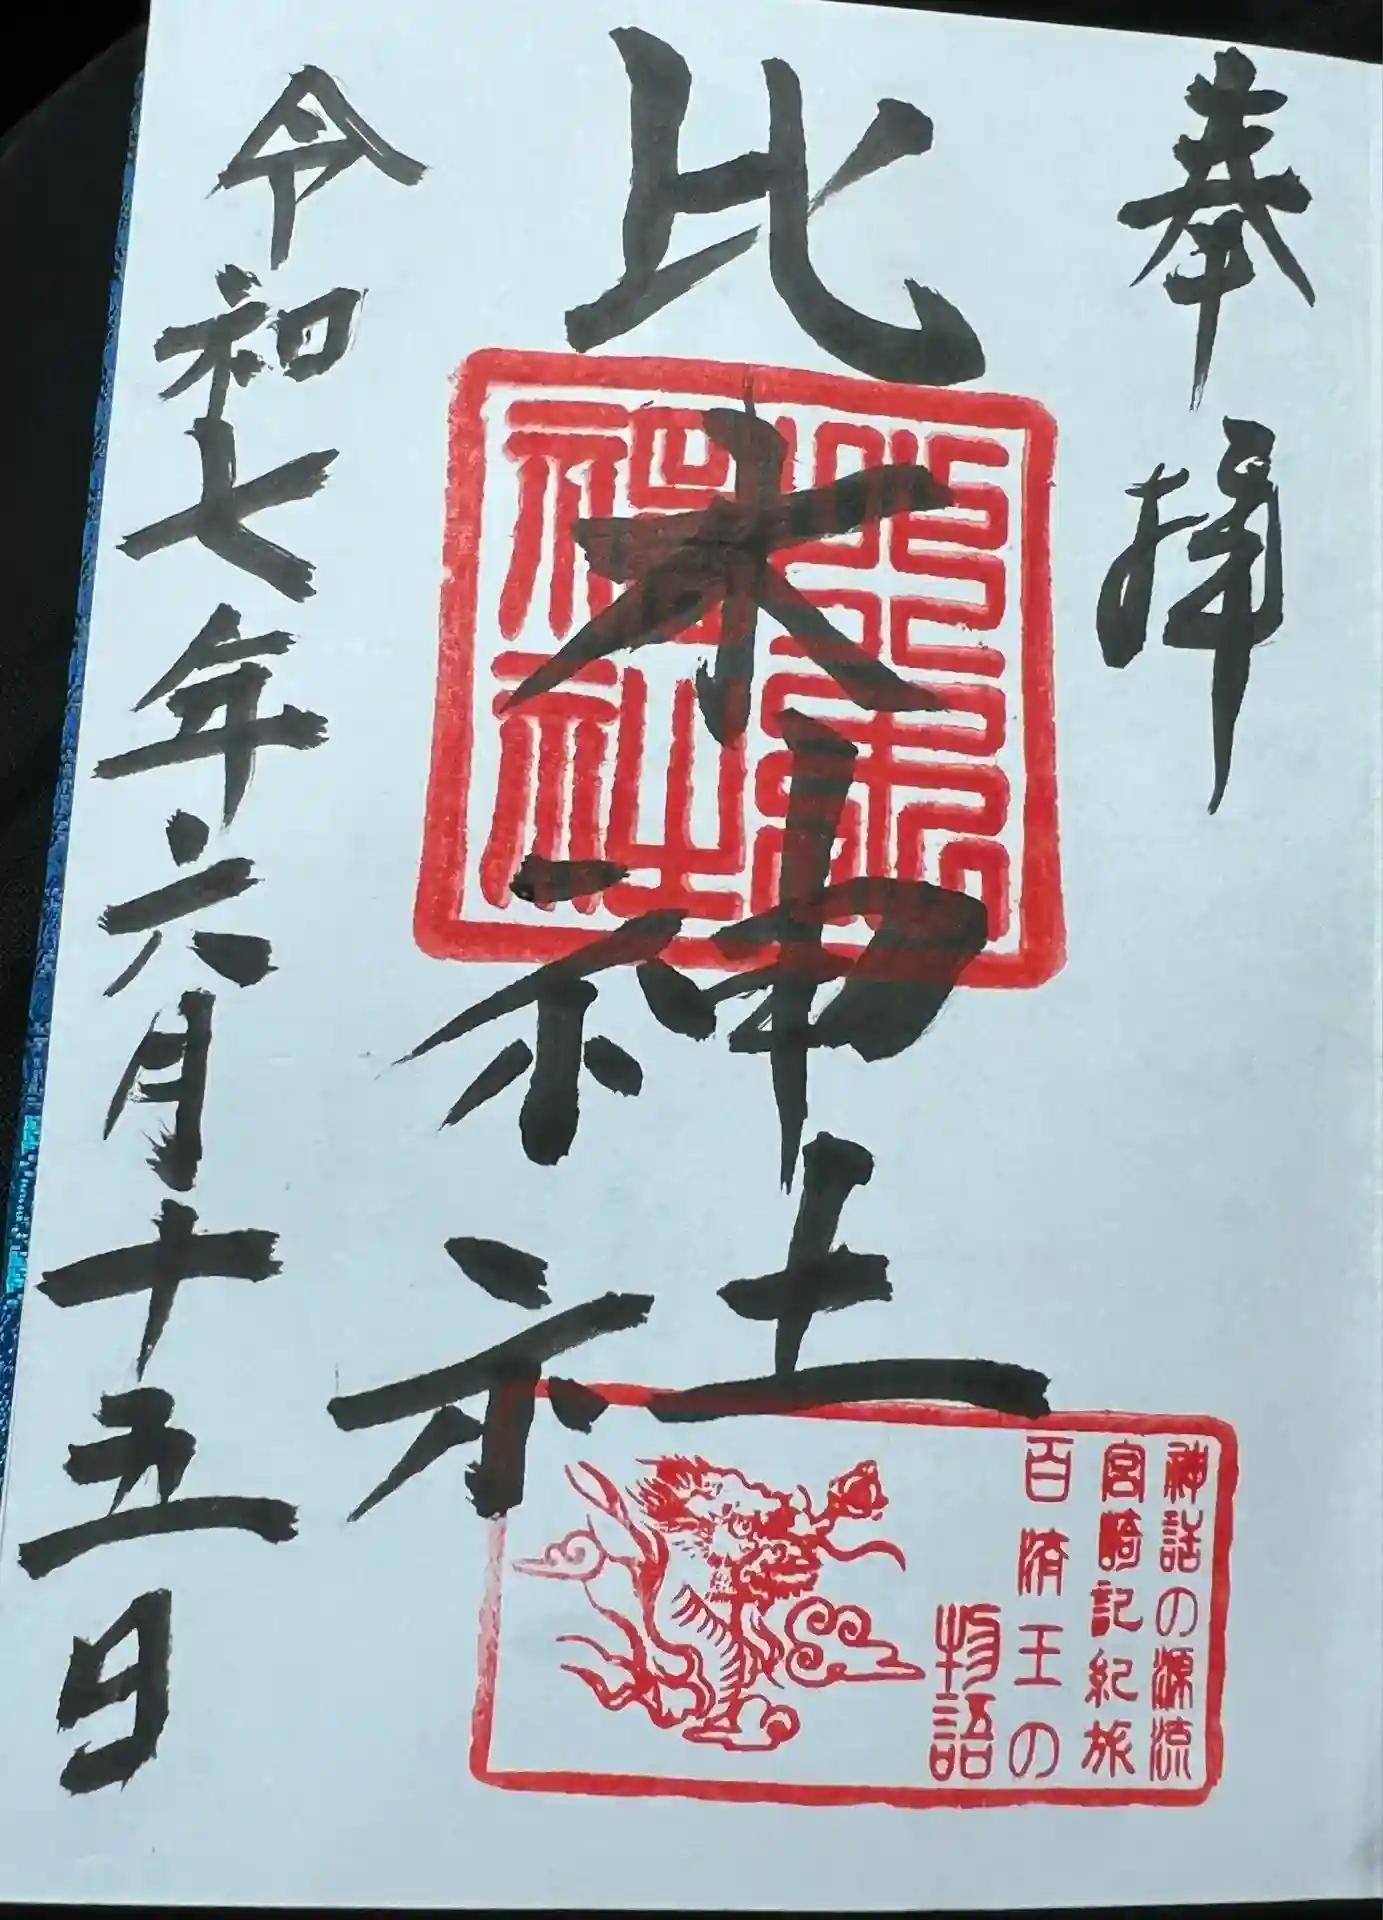 奉拝
比木神社
比木
神社
神話の源流
宮崎記紀旅
百済王の
物語
令和七年六月十五日